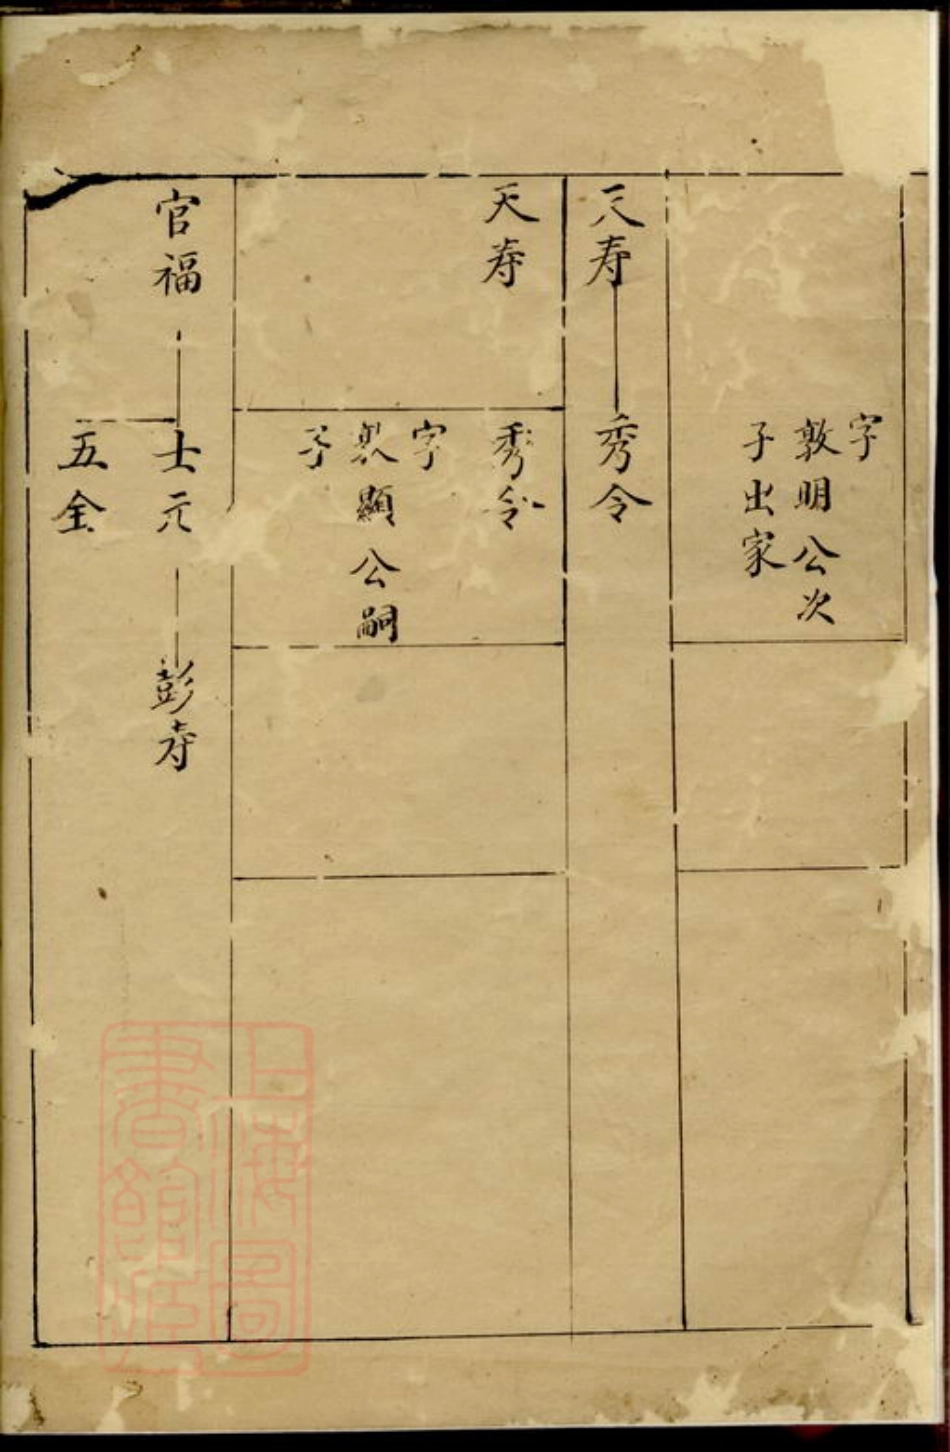 字
敦明公次
子出家
天寿
秀令
天寿
秀令
字
顯公嗣
子
官福
士元
彭寿
五全
上海圖
書館藏